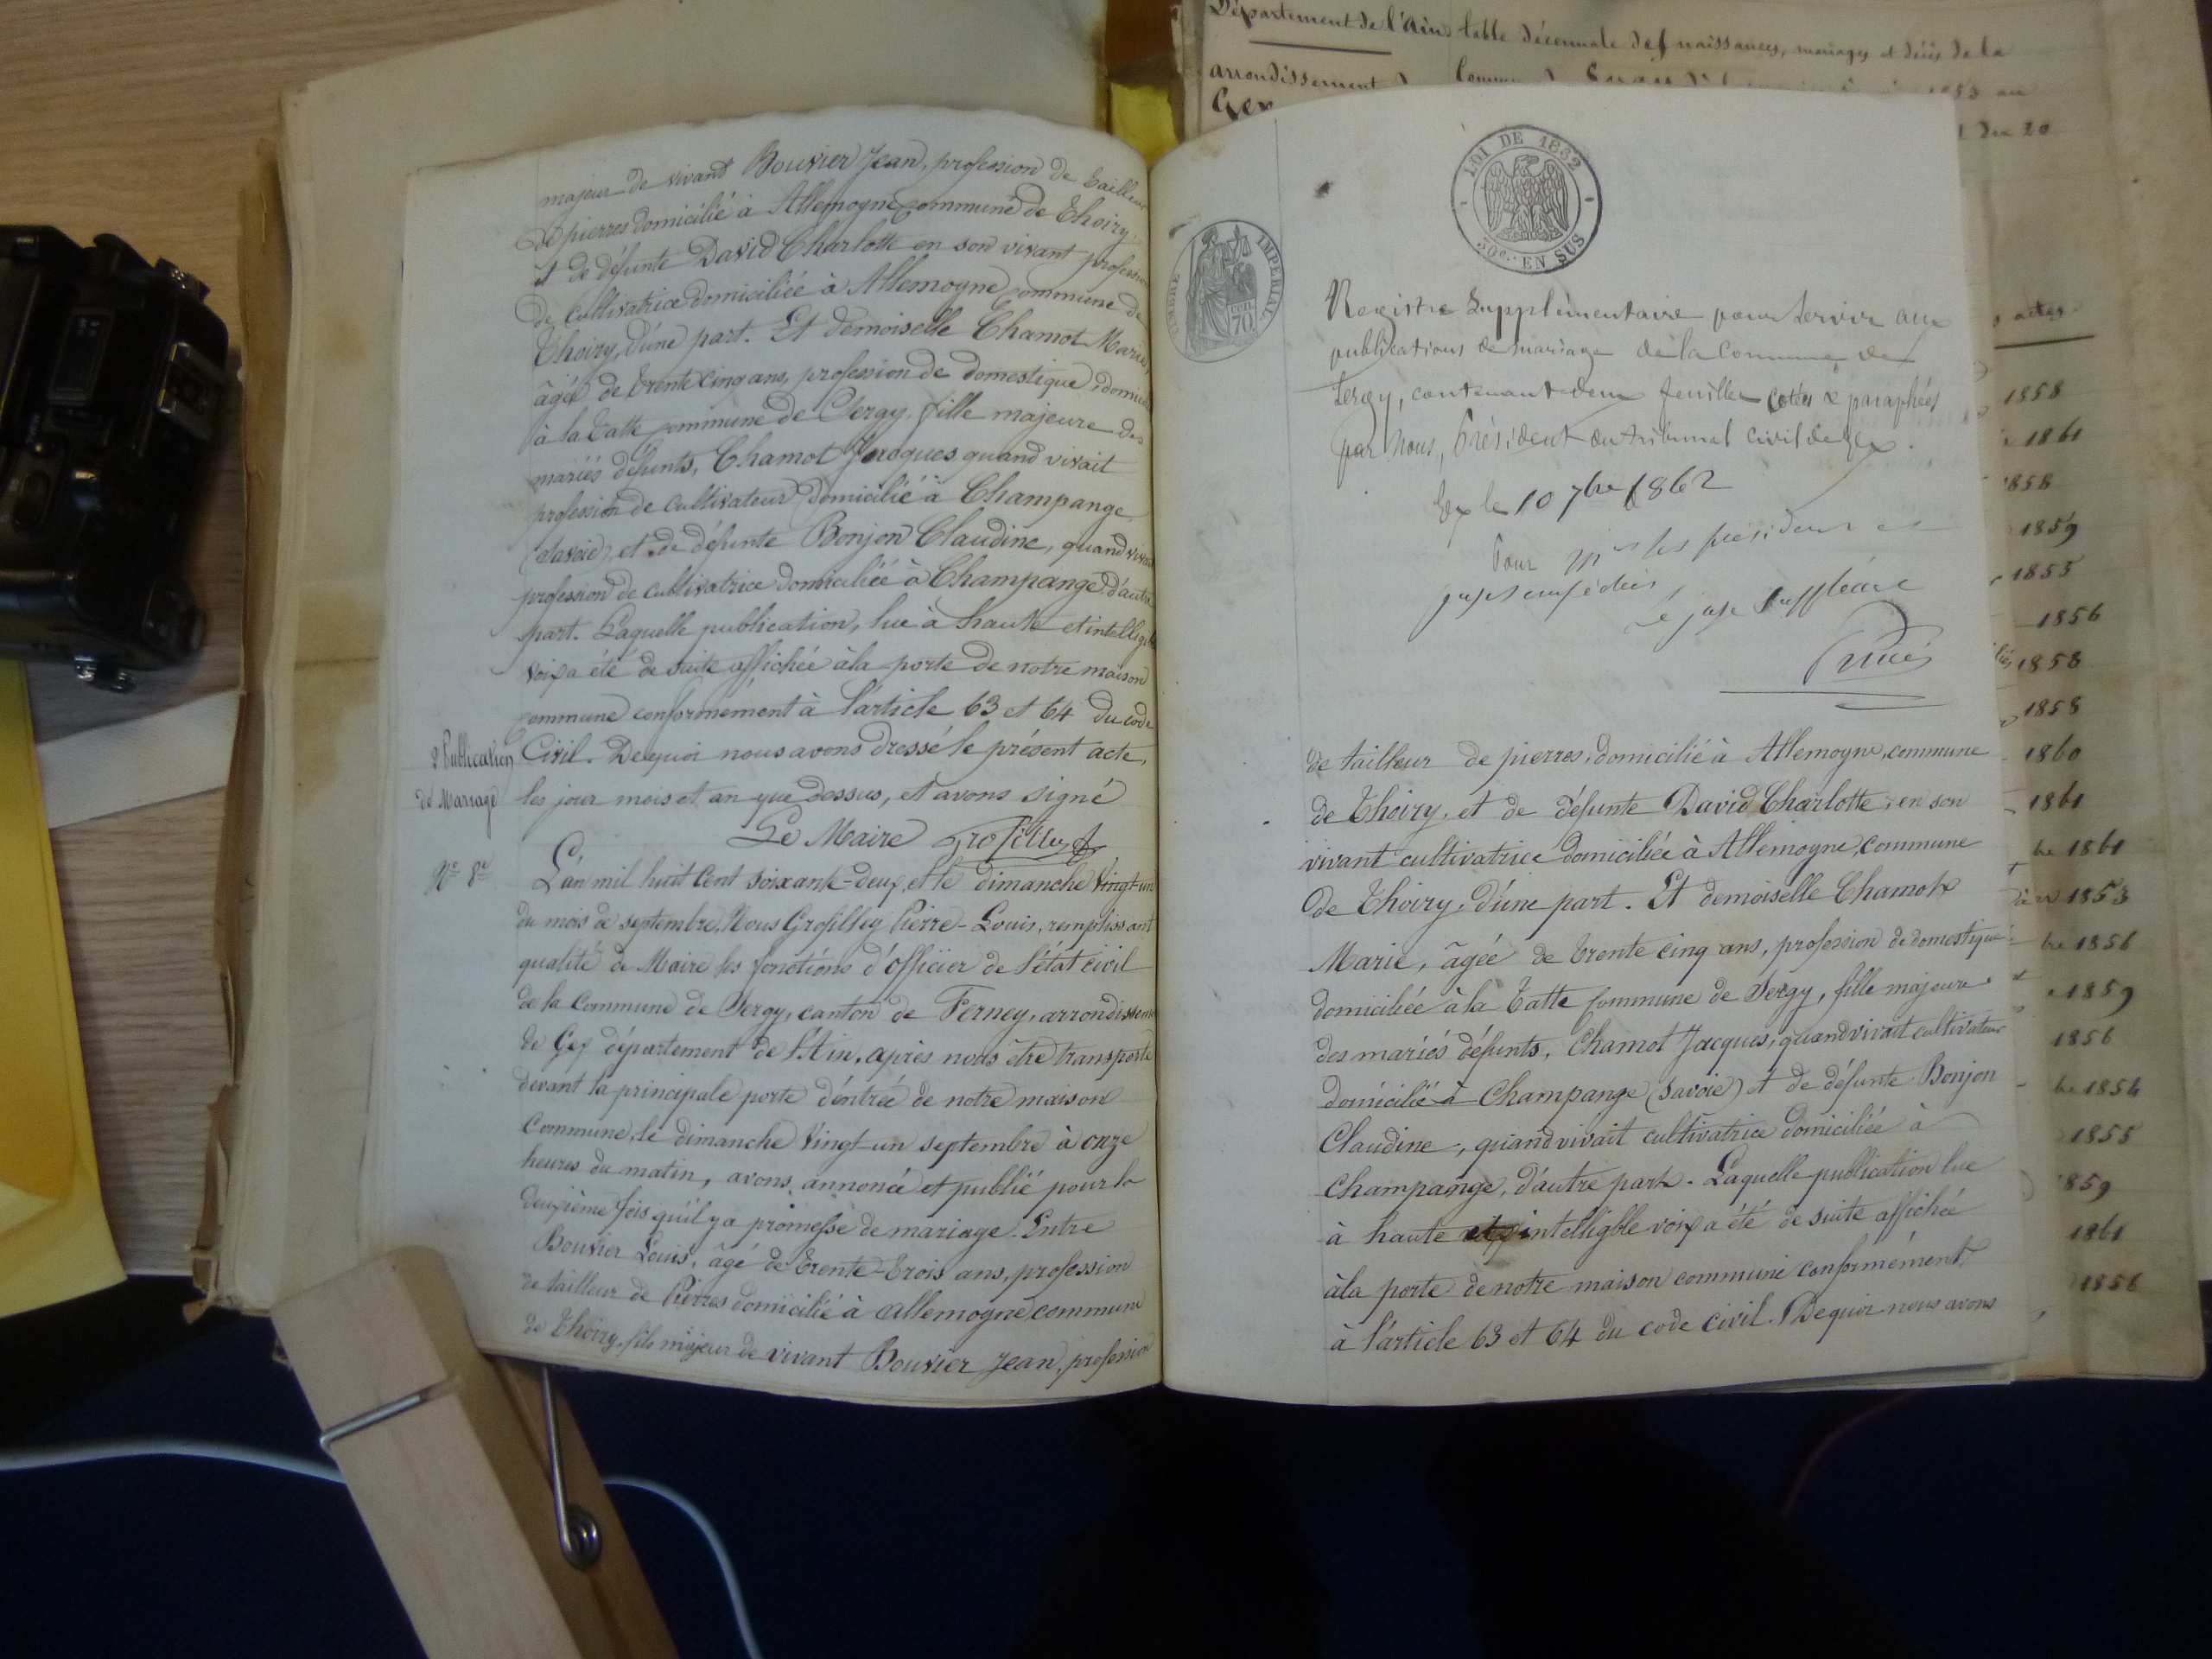 majeur de vivant Bouvier Jean, profession de tailleur
de pierres domicilié à Allemogne commune de Thoiry,
et de défunte David Charlotte en son vivant profession
de cultivatrice domiciliée à Allemogne commune de
Thoiry, d'une part. Et demoiselle Chamot Marie,
âgée de trente cinq ans, profession de domestique, domici
à la Tatte commune de Sergy, fille majeure des
mariés défunts, Chamot Jacques, quand vivait
profession de cultivateur domicilié à Champange
(Savoie) et de défunte Bonjon Claudine, quand vivait
profession de cultivatrice domiciliée à Champange, d'autre
part. Laquelle publication, lue à haute et intelligible
voix a été de suite affichée à la porte de notre maison
commune conformément à l'article 63 et 64 du code
Civil. De quoi nous avons dressé le présent acte,
les jour mois et an que dessus, et avons signé
Le Maire Grosfilley
2e Publication
de Mariage
No 8e
L'an mil huit cent soixante-deux, et le dimanche vingt-un
du mois de septembre, Nous Grosfilley Pierre-Louis, remplissant
qualité de Maire les fonctions d'officier de l'état civil
de la Commune de Sergy, canton de Ferney, arrondissem
de Gex département de l'Ain, après nous être transporté
devant la principale porte d'entrée de notre maison
Commune, le dimanche vingt-un septembre à onze
heures du matin, avons annoncé et publié pour la
deuxième fois qu'il y a promesse de mariage. Entre
Bouvier Louis, âgé de trente-trois ans, profession
de tailleur de Pierres domicilié à Allemogne commune
de Thoiry, fils majeur de vivant Bouvier Jean, profession
LOI DE 1832
50c. EN SUS
TIMBRE IMPERIAL
70
Registre Supplémentaire pour servir aux
publications de mariage de la Commune de
Sergy, contenant deux feuilles cotées & paraphées
par nous, Président du tribunal civil de Gex.
Gex le 10 7bre 1862
Pour Mrs les présidens et
juges empêchés
le juge suppléant
de tailleur de pierres, domicilié à Allemogne, commune
de Thoiry, et de défunte David Charlotte, en son
vivant cultivatrice domiciliée à Allemogne, commune
de Thoiry, d'une part. Et demoiselle Chamot
Marie, âgée de trente cinq ans, profession de domestique
domiciliée à la Tatte Commune de Sergy, fille majeure
des mariés défunts, Chamot Jacques, quand vivait cultivateur
domicilié à Champange (Savoie) et de défunte Bonjon
Claudine, quand vivait cultivatrice domiciliée à
Champange, d'autre part. Laquelle publication lue
à haute et intelligble voix a été de suite affichée
à la porte de notre maison commune conformément
à l'article 63 et 64 du code civil. De quoi nous avons
Département de l'Ain table décennale des naissances, mariages et décès de la
arrondissement
Gex
1853 au
du 20
actes
1858
1861
1858
1859
1855
1856
1858
1858
1860
1861
bre 1861
1853
bre 1856
1859
1856
bre 1854
1855
1859
1861
1856